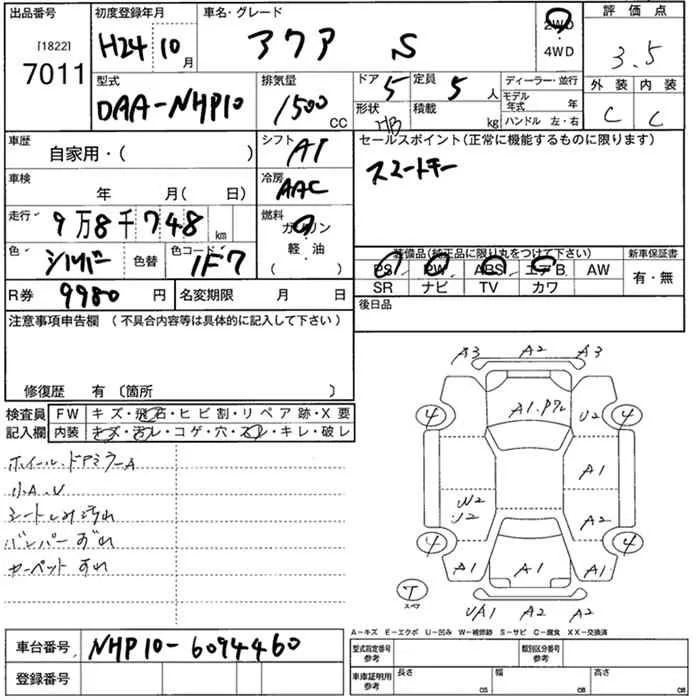 出品番号 初度登録年月 車名・グレード 評価点
[1822] 7011 H24 10月 アクア S 2WD・4WD 3.5
型式 排気量 ドア 定員 ディーラー・並行 外装 内装
DAA-NHP10 1500 CC 5 5人 モデル年式 年 C C
形状 HB 積載 kg ハンドル 左・右
車歴 自家用・( ) シフト AT セールスポイント(正常に機能するものに限ります)
車検 年 月( 日) 冷房 AAC スマートキー
走行 9万8千748 km 燃料 ガソリン
色 シルバー 色替 色コード 1F7 軽・油
( )
装備品(純正品に限り丸をつけて下さい) 新車保証書
PS PW ABS エアB AW 有・無
SR ナビ TV カワ
R券 9980 円 名変期限 月 日 後日品
注意事項申告欄 (不具合内容等は具体的に記入して下さい)
修復歴 有〔箇所 〕
検査員記入欄 FW キズ・飛石・ヒビ割・リペア跡・X要
内装 キズ・汚レ・コゲ・穴・スレ・キレ・破レ
ホイール・ドアミラーA
小A.U
シートしみ汚れ
バンパーずれ
カーペットすれ
A3 A2 A3
4 A1.P7ル U2 4
A1
W2 U2 A2
4 4
A1 A1 A1
T スペア
U/A1 A2 A2
A-キズ E-エクボ U-凹み W-補修跡 S-サビ C-腐食 XX-交換済
車台番号 NHP10-6094460 型式指定番号 参考 類別区分番号 参考
登録番号 車庫証明用 参考 長さ cm 幅 cm 高さ cm